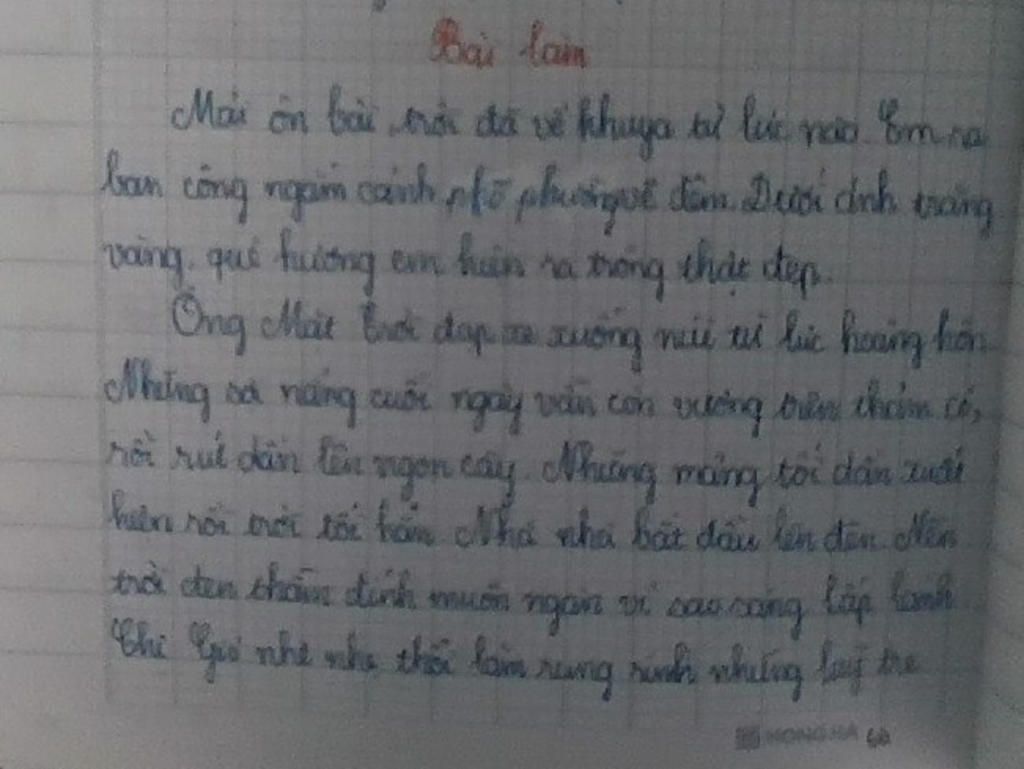 Bài làm
Mải ôn bài, trời đã về khuya từ lúc nào. Em ra
ban công ngắm cảnh phố phường về đêm. Dưới ánh trăng
vàng, quê hương em hiện ra trông thật đẹp.
Ông Mặt trời đạp xe xuống núi từ lúc hoàng hôn.
Những sợi nắng cuối ngày vẫn còn vương trên thảm cỏ,
rồi rút dần lên ngọn cây. Những mảng tối dần xuất
hiện rồi trời tối hẳn. Nhà nhà bắt đầu lên đèn. Nền
trời đen thẫm đính muôn ngàn vì sao sáng lấp lánh.
Chị Gió nhè nhẹ thổi làm rung rinh những luỹ tre
HONG HA 60